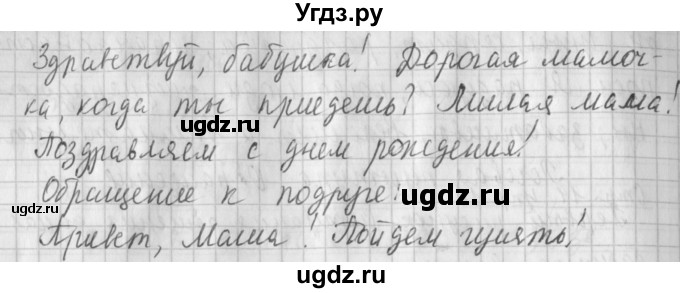 Угдз.ру
Здравствуй, бабушка! Дорогая мамоч-
ка, когда ты приедешь? Милая мама!
ugdz.ru ugdz.ru
Поздравляем с днем рождения!
Обращение к подруге:
ugdz.ru ugdz.ru
Привет, Маша! Пойдем гулять!
ugdz.ru